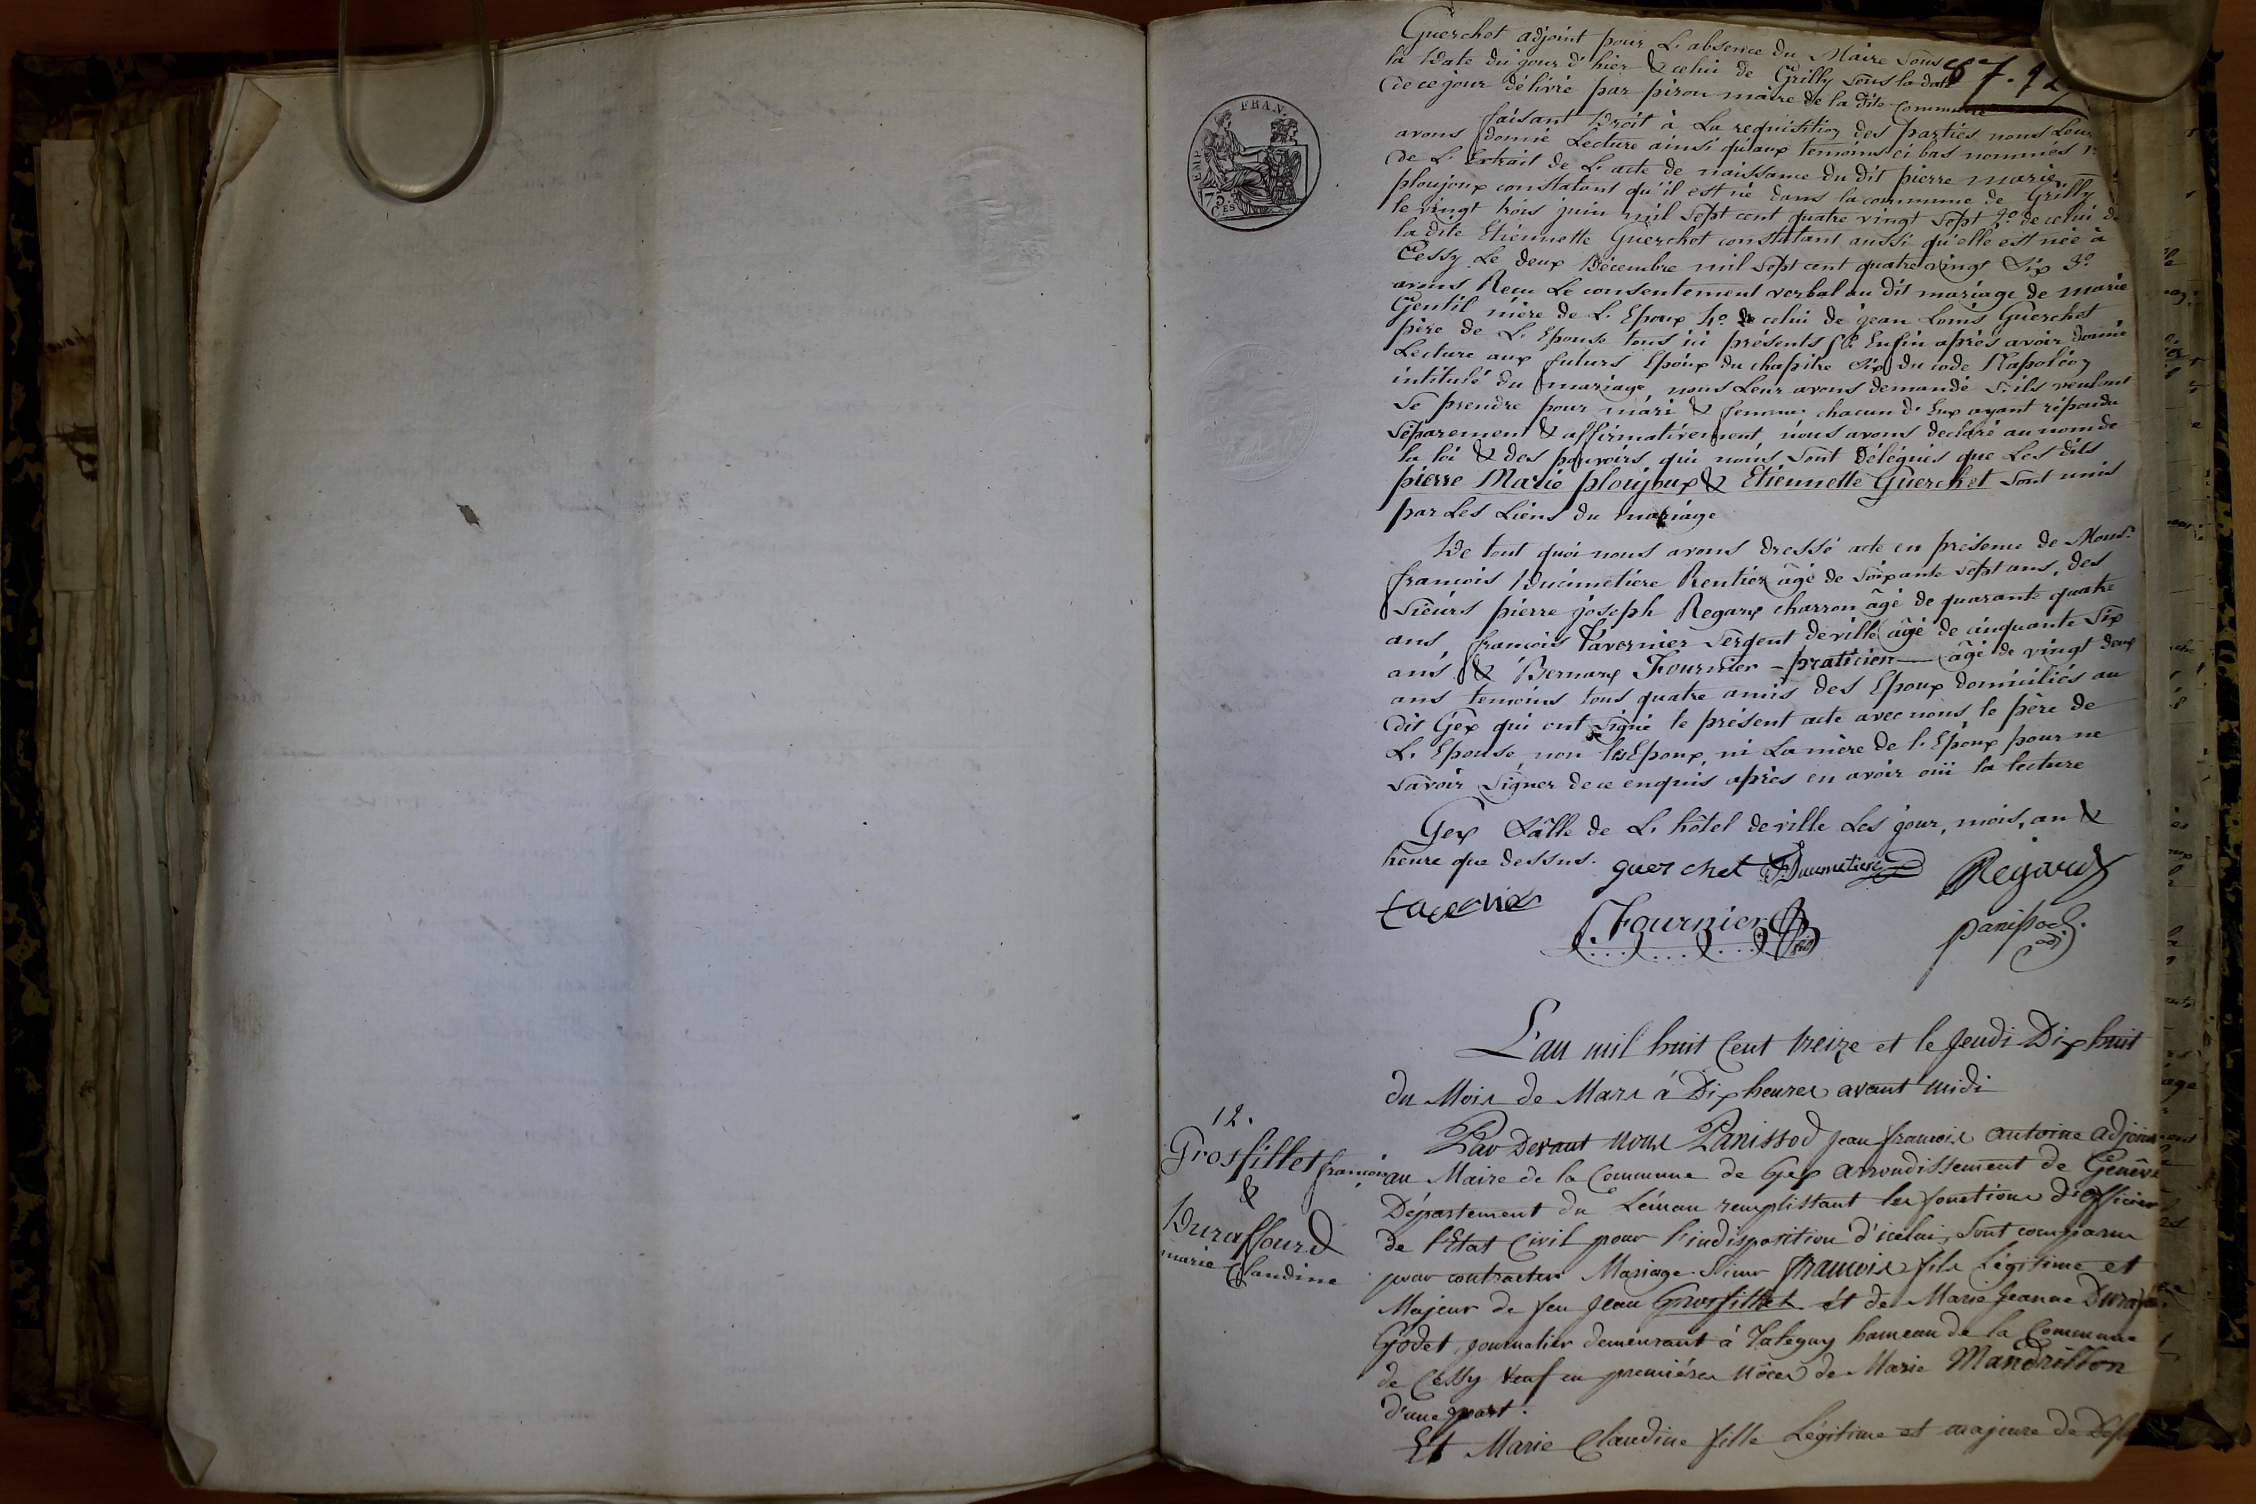 Guerchet adjoint pour L'absence du Maire sous
la Date du jour d'hier & celui de Grilly sous la date
de ce jour délivré par pirou maire de la dite Commune
faisant Droit à La requisition des parties nous Leur
avons donné Lecture ainsi qu'aux temoins ci bas nommés 1º
de L'Extrait de L'acte de naissance du dit pierre marie
ploujoux constatant qu'il est né dans la commune de Grilly
le vingt trois juin mil sept cent quatre vingt sept 2º de celui de
la dite Etiennette Guerchet constatant aussi qu'elle est née à
Cessy Le deux Décembre mil sept cent quatre vingt Six 3º
avons Recu Le consentement verbal au dit mariage de marie
Gentil mère de L'Epoux 4º de celui de jean Louis Guerchet
père de L'Epouse tous ici présents 5º Enfin après avoir donné
Lecture aux futurs Epoux du chapitre Six du code Napoléon
intitulé du mariage, nous Leur avons demandé s'ils veulent
se prendre pour mari & femme chacun d'Eux ayant répondu
séparement & affirmativement, nous avons declaré au nom de
la loi & des pouvoirs qui nous sont délégués que Les dits
pierre Marie ploujoux & Etiennette Guerchet sont unis
par Les Liens du mariage
De tout quoi nous avons dressé acte en présence de Mons.r
francois Ducimetiere Rentier âgé de soixante sept ans, des
Sieurs pierre joseph Regard charron âgé de quarante quatre
ans, francois Tavernier Sergent de ville âgé de cinquante Six
ans & Bernard Fournier - praticien - âgé de vingt deux
ans temoins tous quatre amis des Epoux domiciliés au
dit Gex qui ont signé le présent acte avec nous, le père de
L'Epouse, non les Epoux, ni La mère de l'Epoux pour ne
savoir signer de ce enquis après en avoir ouï la lecture
Gex Salle de L'hôtel de ville Les jour, mois, an &
heure que dessus. guerchet Ducimetiere Regard
tavernier
Fournier
panissod
adj.
FRAN.
EMP.
75
CES
L'an mil huit Cent treize et le Jeudi Dix huit
du Mois de Mars à Dix heures avant midi
12.
Grosfillet françois
&
Duraffourd
marie Claudine
Par Devant Nous Panissod Jean francois antoine adjoint
au Maire de la Commune de Gex arrondissement de Genêve
Département du Léman remplissant les fonctions d'Officier
de l'Etat Civil pour l'indisposition d'icelui, sont comparus
pour contracter Mariage Sieur francois fils Légitime et
Majeur de feu Jean Grosfillet et de Marie Jeanne
Godet, journalier demeurant à Tutegny hameau de la Commune
de Cessy Veuf en premières Nôces de Marie Mandrillon
d'une part.
Et Marie Claudine fille Légitime et majeure de